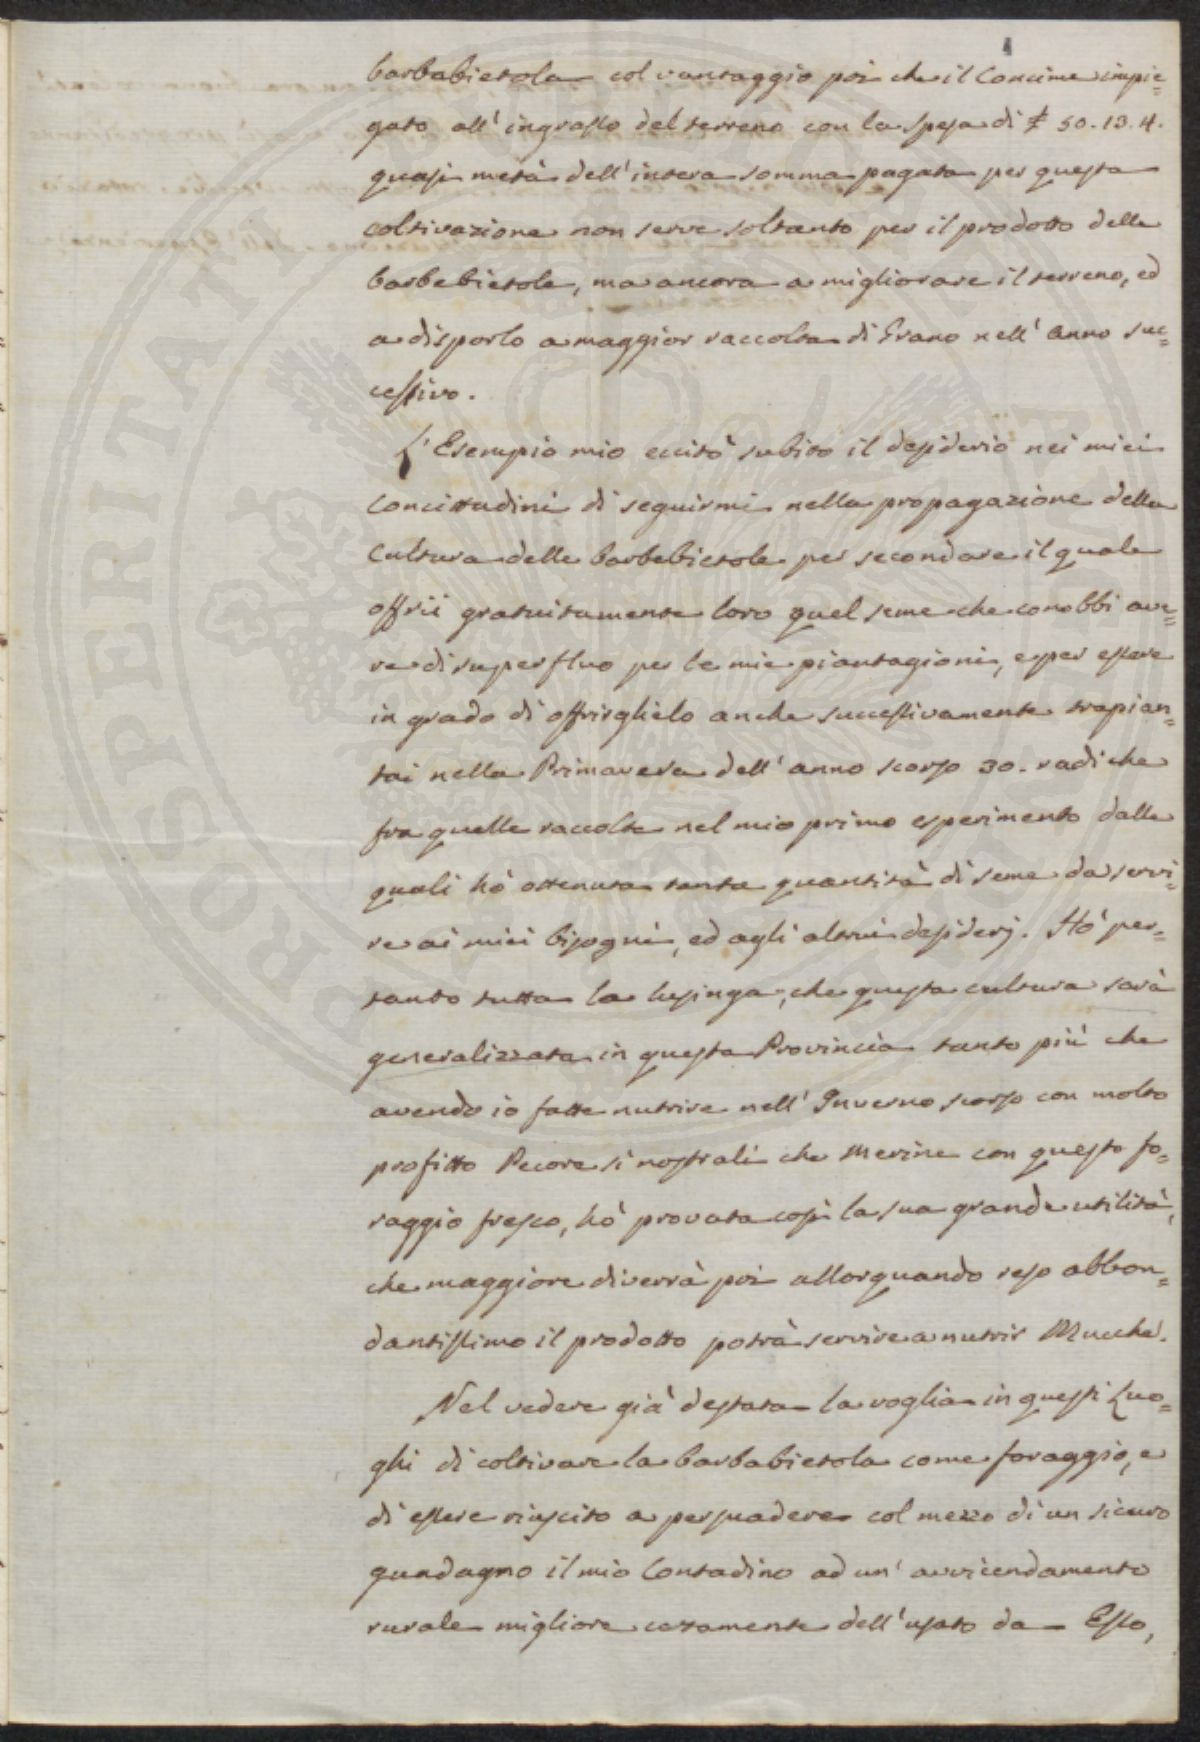 barbabietola col vantaggio poi che il Concime impie=
gato all' ingrasso del terreno con la spesa di £ 50.13.4.
quasi metà dell'intera somma pagata per questa
coltivazione non serve soltanto per il prodotto delle
barbebietole, ma ancora a migliorare il terreno, ed
a disporlo a maggior raccolta di Grano nell' Anno suc=
cessivo.
L'Esempio mio eccitò subito il desiderio nei miei
Concittadini di seguirmi nella propagazione della
Cultura delle barbebietole per secondare il quale
offrii gratuitamente loro quel seme che conobbi ave=
re di superfluo per le mie piantagioni, e per essere
in grado di offrirglielo anche successivamente trapian=
tai nella Primavera dell' anno scorso 30. radiche
fra quelle raccolte nel mio primo esperimento dalle
quali hò ottenuta tanta quantità di seme da servi=
re ai miei bisogni, ed agli altrui desiderj. Hò per=
tanto tutta la lusinga, che questa cultura sarà
generalizzata in questa Provincia tanto più che
avendo io fatte nutrire nell' Inverno scorso con molto
profitto Pecore sì nostrali che Merine con questo fo=
raggio fresco, hò provata così la sua grande utilità,
che maggiore diverrà poi allorquando reso abbon=
dantissimo il prodotto potrà servire a nutrir Mucche.
Nel vedere già destata la voglia in questi Luo=
ghi di coltivare la barbabietola come foraggio, e
di essere riuscito a persuadere col mezzo di un sicuro
guadagno il mio Contadino ad un' avvicendamento
rurale migliore certamente dell'usato da Esso,
PROSPERITATI PUBLICAE